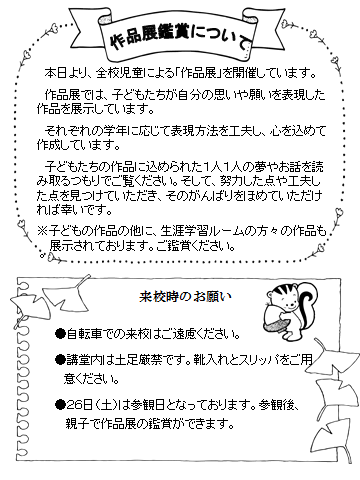 作品展鑑賞について
本日より、全校児童による「作品展」を開催しています。
作品展では、子どもたちが自分の思いや願いを表現した
作品を展示しています。
それぞれの学年に応じて表現方法を工夫し、心を込めて
作成しています。
子どもたちの作品に込められた1人1人の夢やお話を読
み取るつもりでご覧ください。そして、努力した点や工夫し
た点を見つけていただき、そのがんばりをほめていただけ
れば幸いです。
※子どもの作品の他に、生涯学習ルームの方々の作品も
展示されております。ご鑑賞ください。
来校時のお願い
●自転車での来校はご遠慮ください。
●講堂内は土足厳禁です。靴入れとスリッパをご用
意ください。
●26日(土)は参観日となっております。参観後、
親子で作品展の鑑賞ができます。